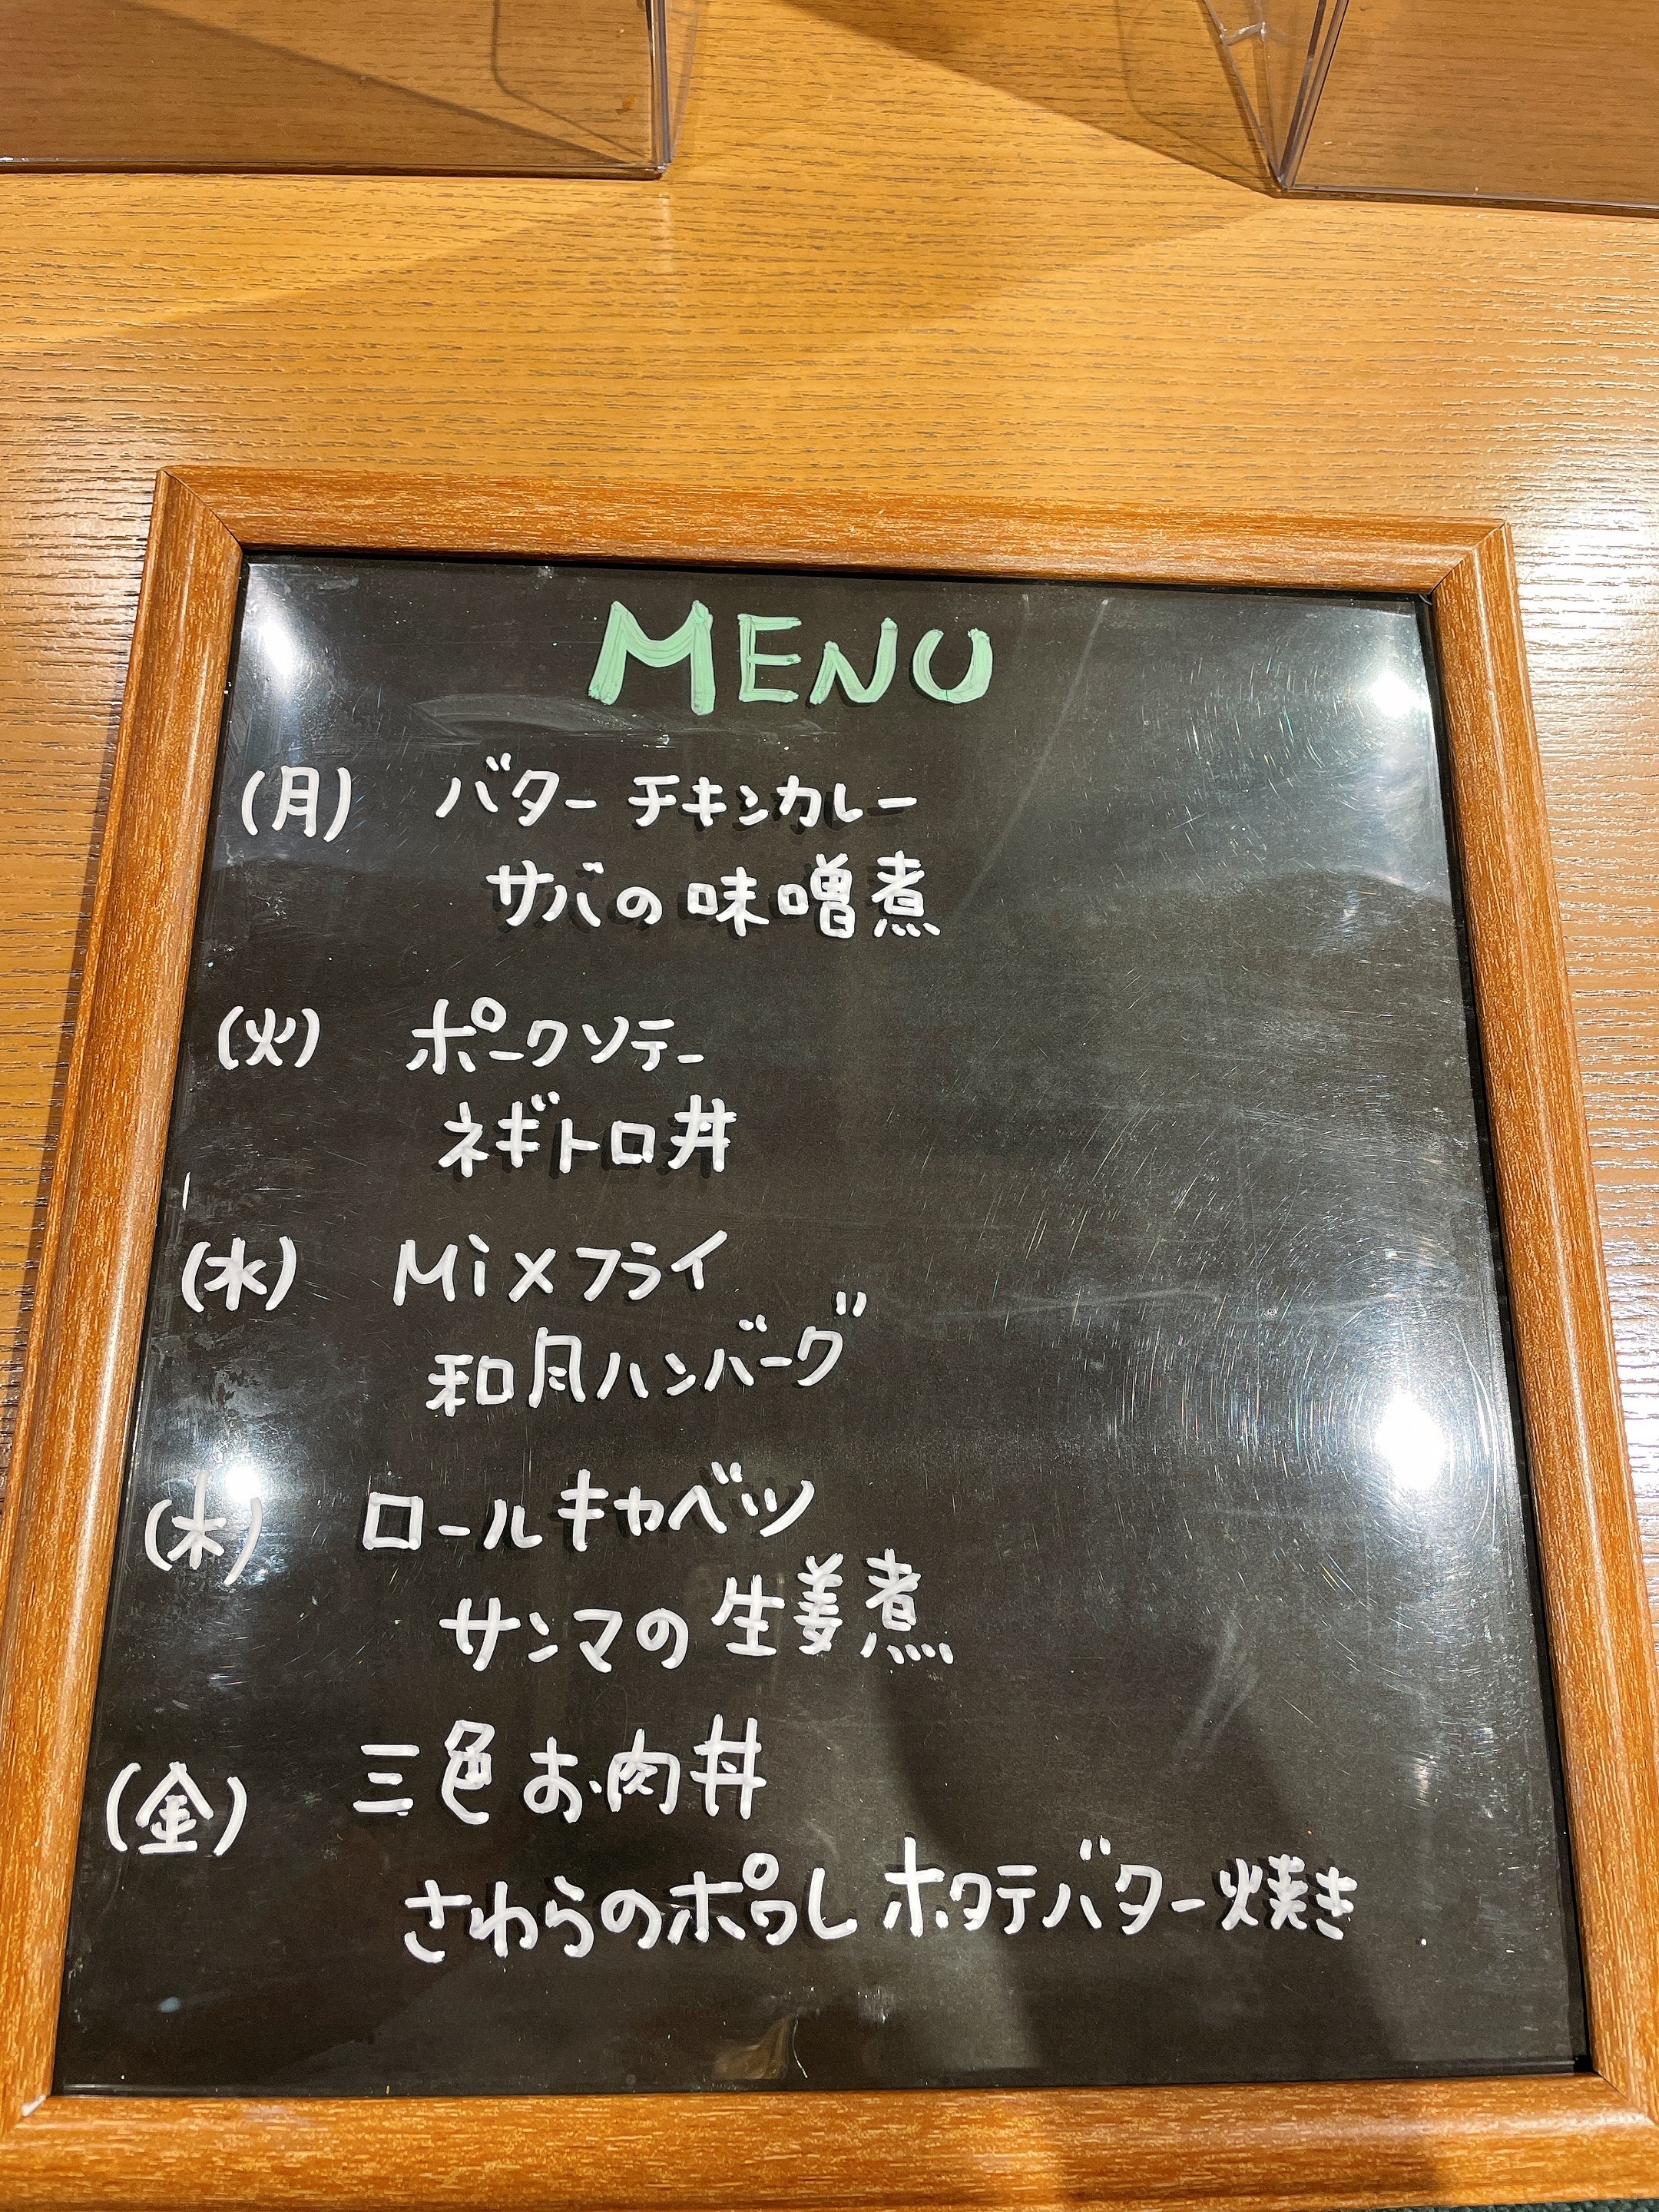 MENU
(月) バターチキンカレー
サバの味噌煮
(火) ポークソテー
ネギトロ丼
(水) Mixフライ
和風ハンバーグ
(木) ロールキャベツ
サンマの生姜煮
(金) 三色お肉丼
さわらのポワレ ホタテバター焼き